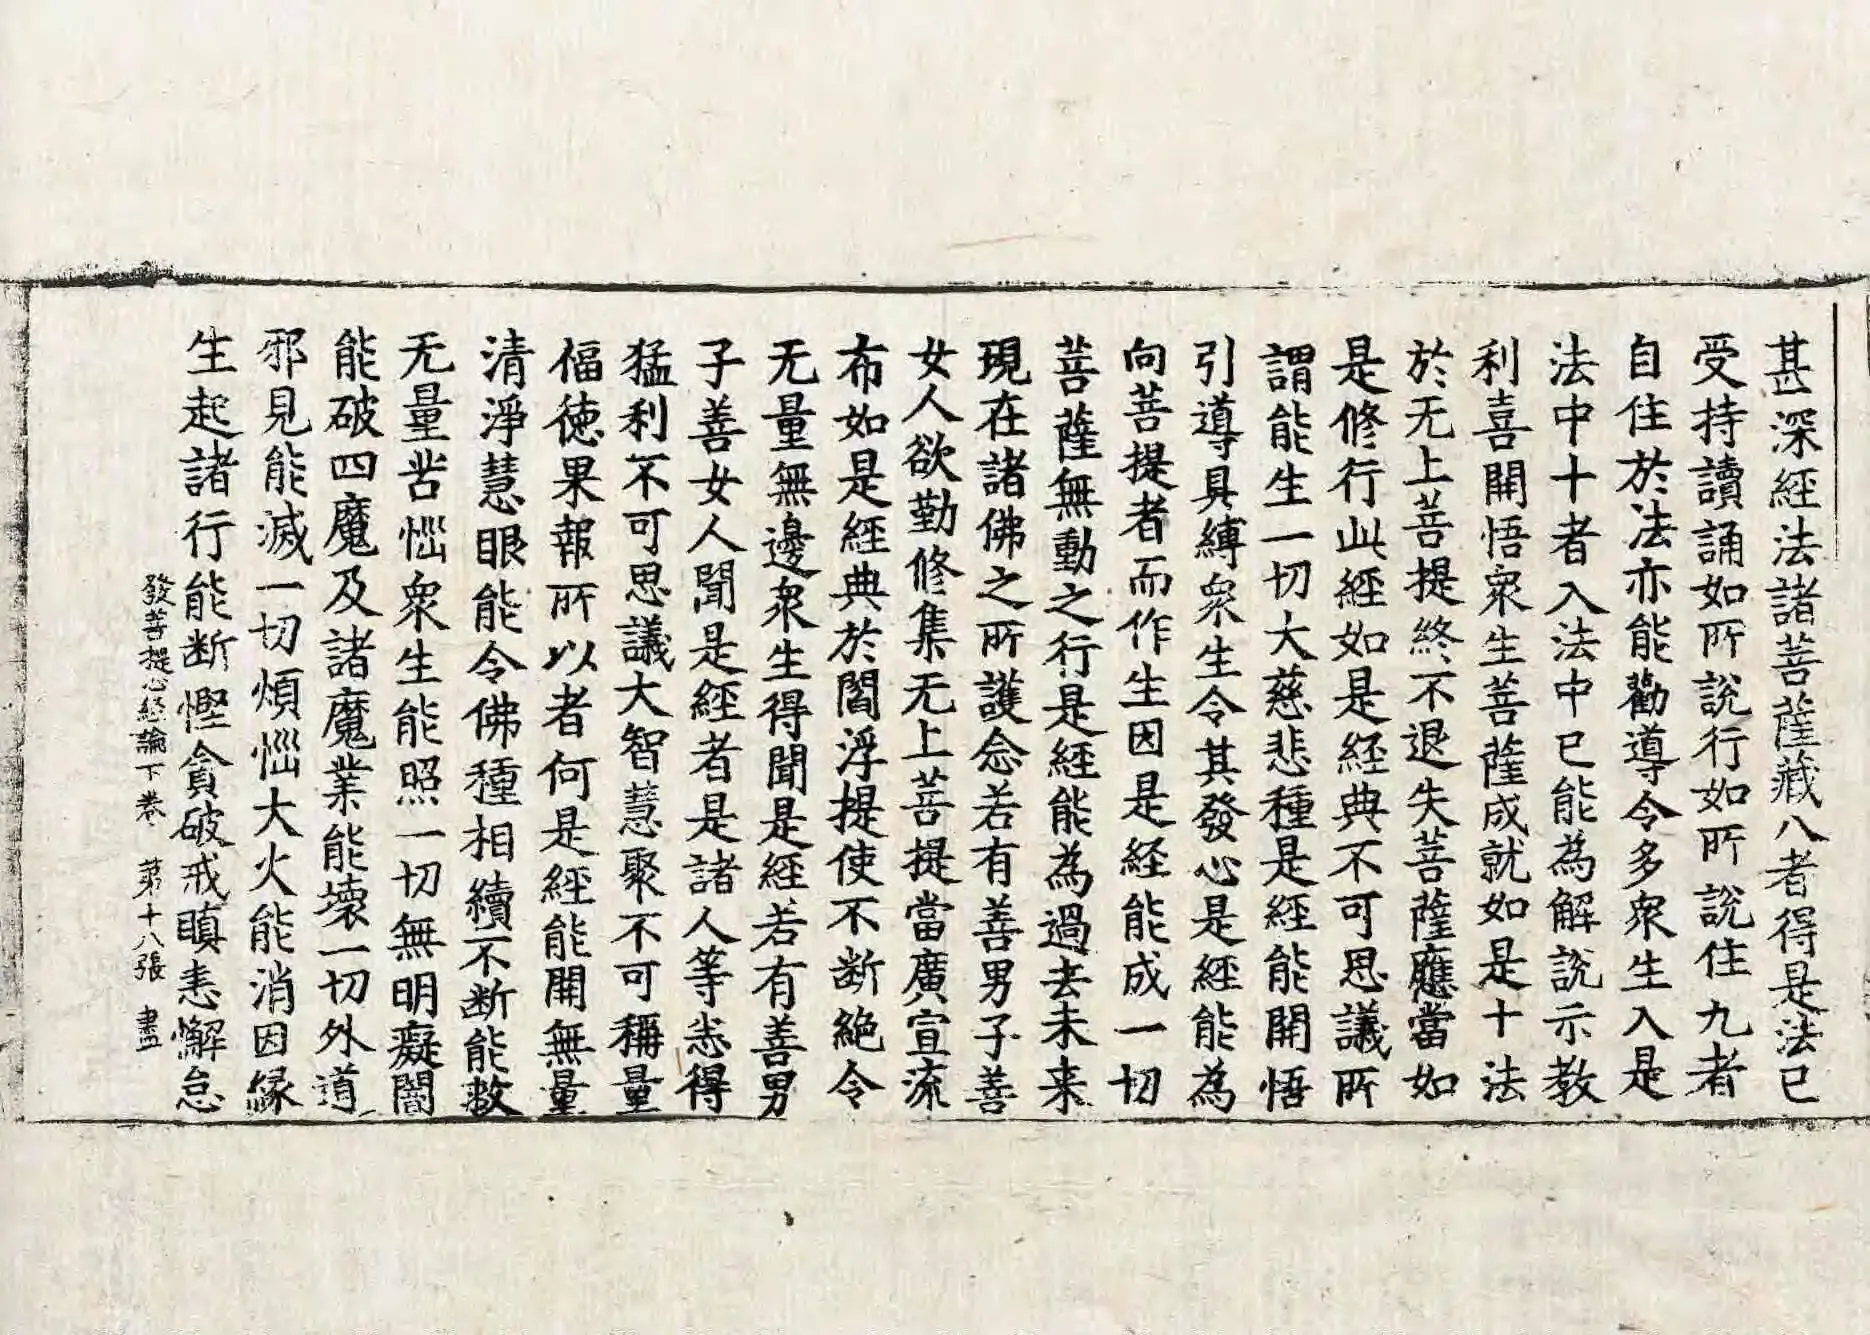 甚深經法諸菩薩藏八者得是法已
受持讀誦如所說行如所說住九者
自住於法亦能勸導令多衆生入是
法中十者入法中已能為解說示教
利喜開悟衆生菩薩成就如是十法
於无上菩提終不退失菩薩應當如
是修行此經如是經典不可思議所
謂能生一切大慈悲種是經能開悟
引導具縛衆生令其發心是經能為
向菩提者而作生因是経能成一切
菩薩無動之行是経能為過去未来
現在諸佛之所護念若有善男子善
女人欲勤修集无上菩提當廣宣流
布如是経典於閻浮提使不断絶令
无量無邊衆生得聞是経若有善男
子善女人聞是經者是諸人等悉得
猛利不可思議大智慧聚不可稱量
福徳果報所以者何是經能開無量
清淨慧眼能令佛種相續不断能救
无量苦惱衆生能照一切無明癡闇
能破四魔及諸魔業能壞一切外道
邪見能滅一切煩惱大火能消因縁
生起諸行能断慳貪破戒瞋恚懈怠
發菩提心経論下卷 第十八張 畫